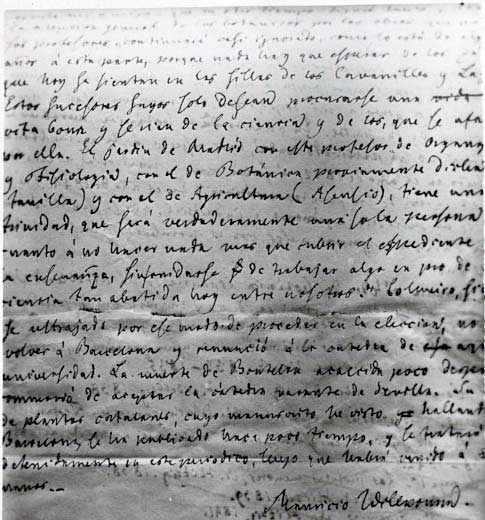 la atencion general de los botánicos por las obras que
sus profesores, continuará casi ignorado, como lo está de algunos
años á esta parte, porque nada hay que esperar de los
que hoy se sientan en las sillas de los Cavanilles y La
Estos sucesores suyos solo desean procurarse una vida
vita bona y se rien de la ciencia y de los, que se afa
por ella. El jardin de Madrid con este profesor de Organog
y Fisiologia, con el de Botánica propiamente dicha
tanilla) y con el de Agricultura (Asensio), tiene una
trinidad, que será verdaderamente una sola persona
cuanto á no hacer nada mas que cubrir el expediente
la enseñanza, sin de trabajar algo en pro de
ciencia tan abatida hoy entre nosotros." Colmeiro,
se ultrajado por ese modo de proceder en la eleccion,
volver á Barcelona y renunció á la cátedra de
universidad. La muerte de Boutelou acaecida poco despu
de aceptar la cátedra vacante de Sevilla. Su
de plantas catalanas, cuyo manuscrito he visto
Barcelona, se ha publicado hace poco tiempo, y se tratará
detenidamente en este periodico, luego que habrá venido á
manos.—
Mauricio Willkomm.